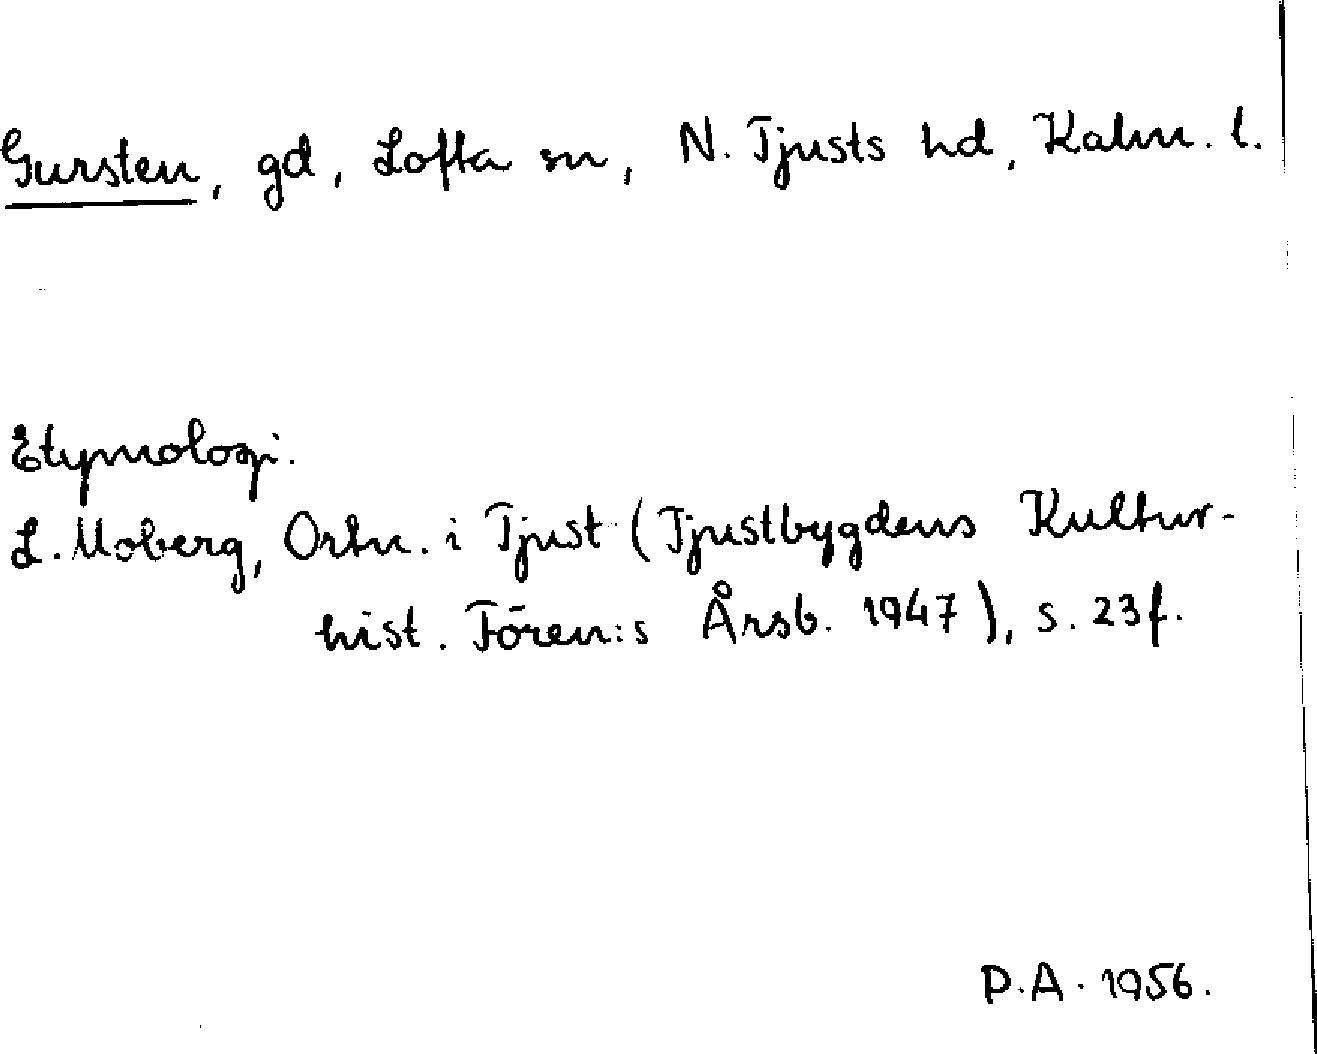 Gursten, gd, Lofta sn, N. Tjusts hd, Kalm. l.
Etymologi.
L. Moberg, Ortn. i Tjust (Tjustbygdens Kultur-
hist. Fören:s Årsb. 1947), s. 23f.
P.A. 1956.